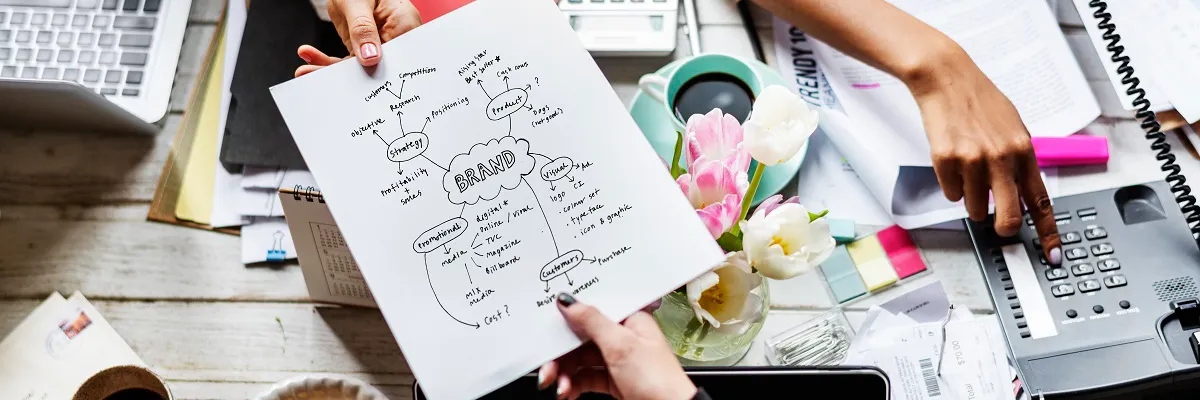 customers
competitors
Research
Objective
Positioning
Strategy
Profitability
+
sales
Rising star
Best seller *
Cash cows
?
Product
Dogs
(not good)
BRAND
Visual
Ad
logo
CI
· colour set
· typeface
· icon & graphic
Promotional
media
digital *
Online / Viral
TVC
Magazine
Billboard
Mix
media
Cost?
Customers
Purchase
Desire
TRENDY
$70.00